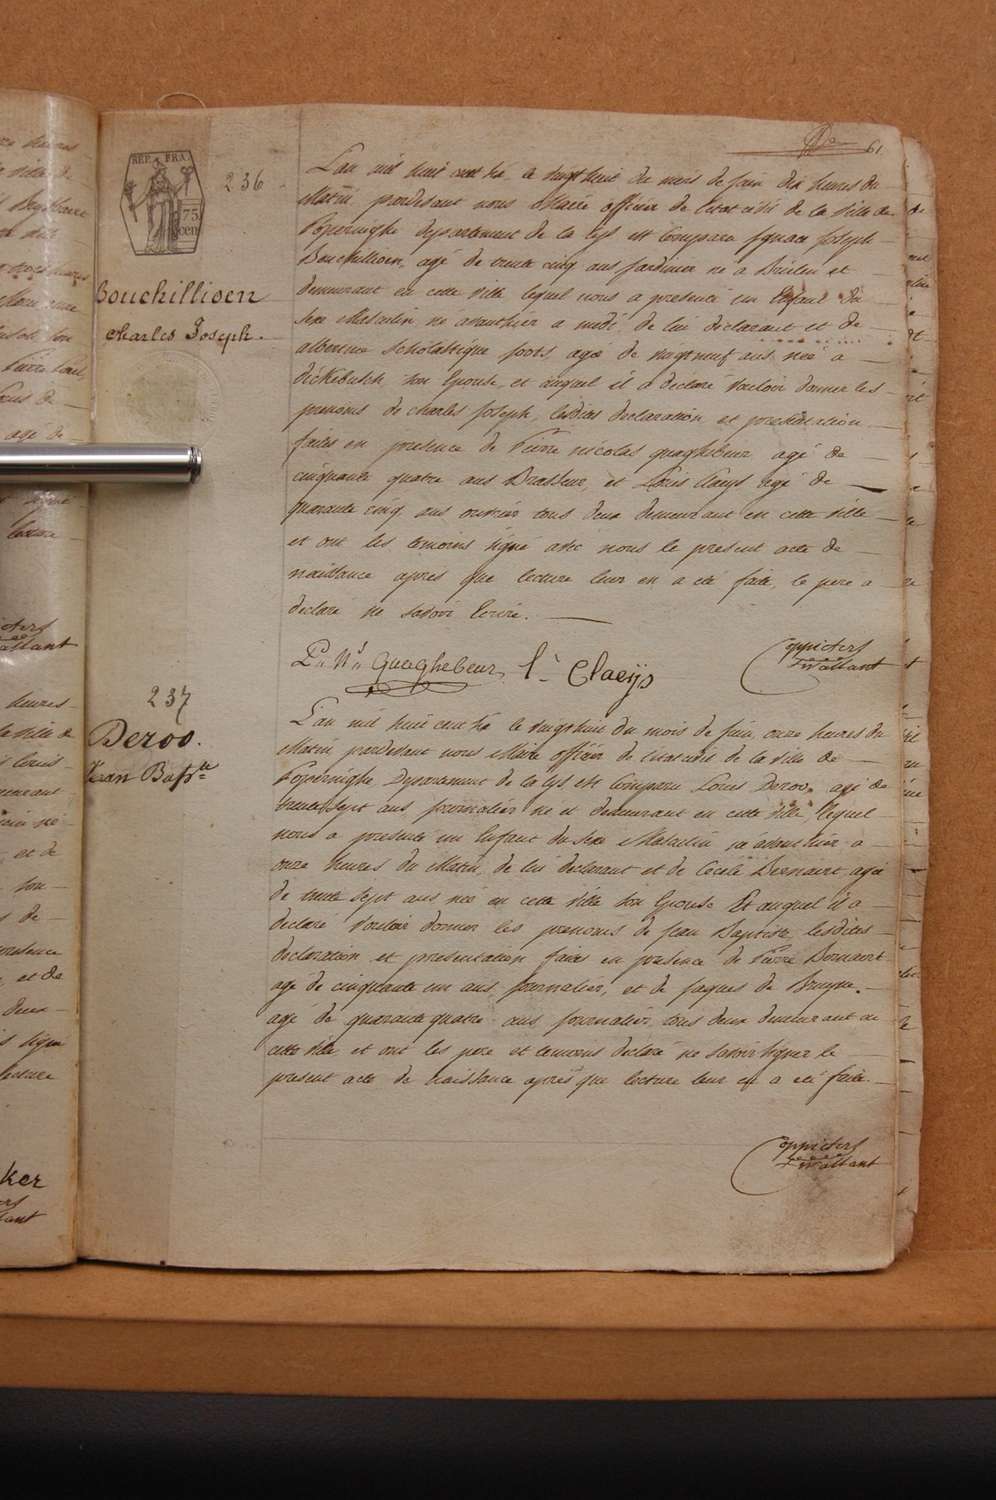 61
REP. FRA.
75
cen
236
Bouchillioen
Charles Joseph.
L'an mil huit cent le vingt huit du mois de Juin dix heures du
Matin pardevant nous Maire officier de l'etat civil de la ville de
Poperinghe departement de la Lys est Comparu Ignace Joseph
Bouchillioen, agé de trente cinq ans Jardinier né a Brielen et
demeurant en cette ville lequel nous a presenté un Enfant du
sexe Masculin né avanthier a midi de lui declarant et de
Scholastique Soots, agée de vingtneuf ans née a
dickebusch son Epouse, et auquel il a declaré vouloir donner les
prenoms de charles Joseph, lesdites declaration et presentation
faites en presence de Pierre nicolas quaghebeur agé de
cinquante quatre ans Brasseur, et Louis Claeys agé de
quarante cinq ans ouvrier tous deux demeurant en cette ville
et ont les temoins signé avec nous le present acte de
naissance après que lecture leur en a été faite, le pere a
declaré ne savoir Ecrire.
P. N. Quaghebeur, L. Claeÿs
Coppieters
Wallant
237
Deroo.
Jean Bapte
L'an mil huit cent le vingthuit du mois de Juin onze heures du
Matin pardevant nous Maire officier de l'etat civil de la ville de
Poperinghe Departement de la Lys est Comparu Louis Deroo, agé de
trentesept ans journalier né et demeurant en cette ville, lequel
nous a presenté un Enfant du sexe Masculin né avanthier a
onze heures du Matin, de lui declarant et de Cecile agée
de trente sept ans née en cette ville son Epouse Et auquel il a
declaré vouloir donner les prenoms de Jean Baptiste lesdites
declaration et presentation faites en presence de Pierre
agé de cinquante un ans Journalier, et de Jaques de Bruyne
agé de quarantequatre ans journalier, tous deux demeurant en
cette ville et ont les pere et temoins declaré ne savoir signer le
present acte de naissance après que lecture leur en a été faite.
Coppieters
Wallant